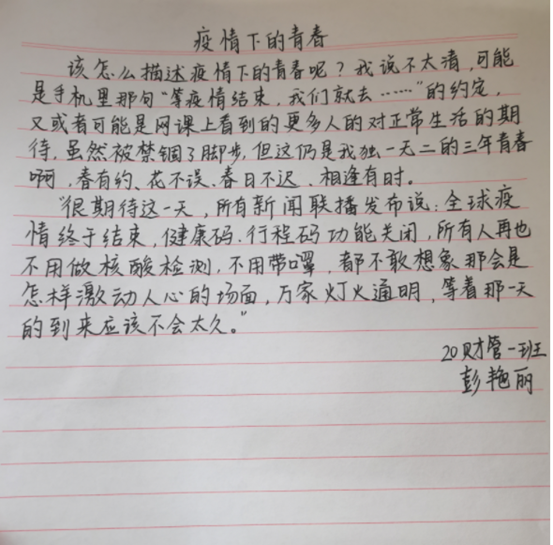 疫情下的青春
该怎么描述疫情下的青春呢？我说不太清，可能
是手机里那句“等疫情结束，我们就去……”的约定，
又或者可能是网课上看到的更多人的对正常生活的期
待，虽然被禁锢了脚步，但这仍是我独一无二的三年青春
啊，春有约、花不误、春日不迟、相逢有时。
“很期待这一天，所有新闻联播发布说：全球疫
情终于结束，健康码、行程码功能关闭，所有人再也
不用做核酸检测，不用带罩，都不敢想象那会是
怎样激动人心的场面，万家灯火通明，等着那一天
的到来应该不会太久。”
20财管一班
彭艳丽